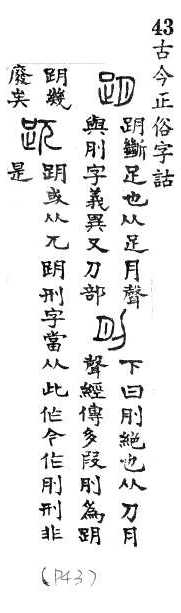 43古今正俗字詁
跀 跀斷足也从足月聲
與刖字義異又刀部
刖 下曰刖絕也从刀月
聲經傳多叚刖為跀
跀幾
廢矣
𧿁 跀或从兀跀刑字當从此作今作刖刑非
是
(P43)